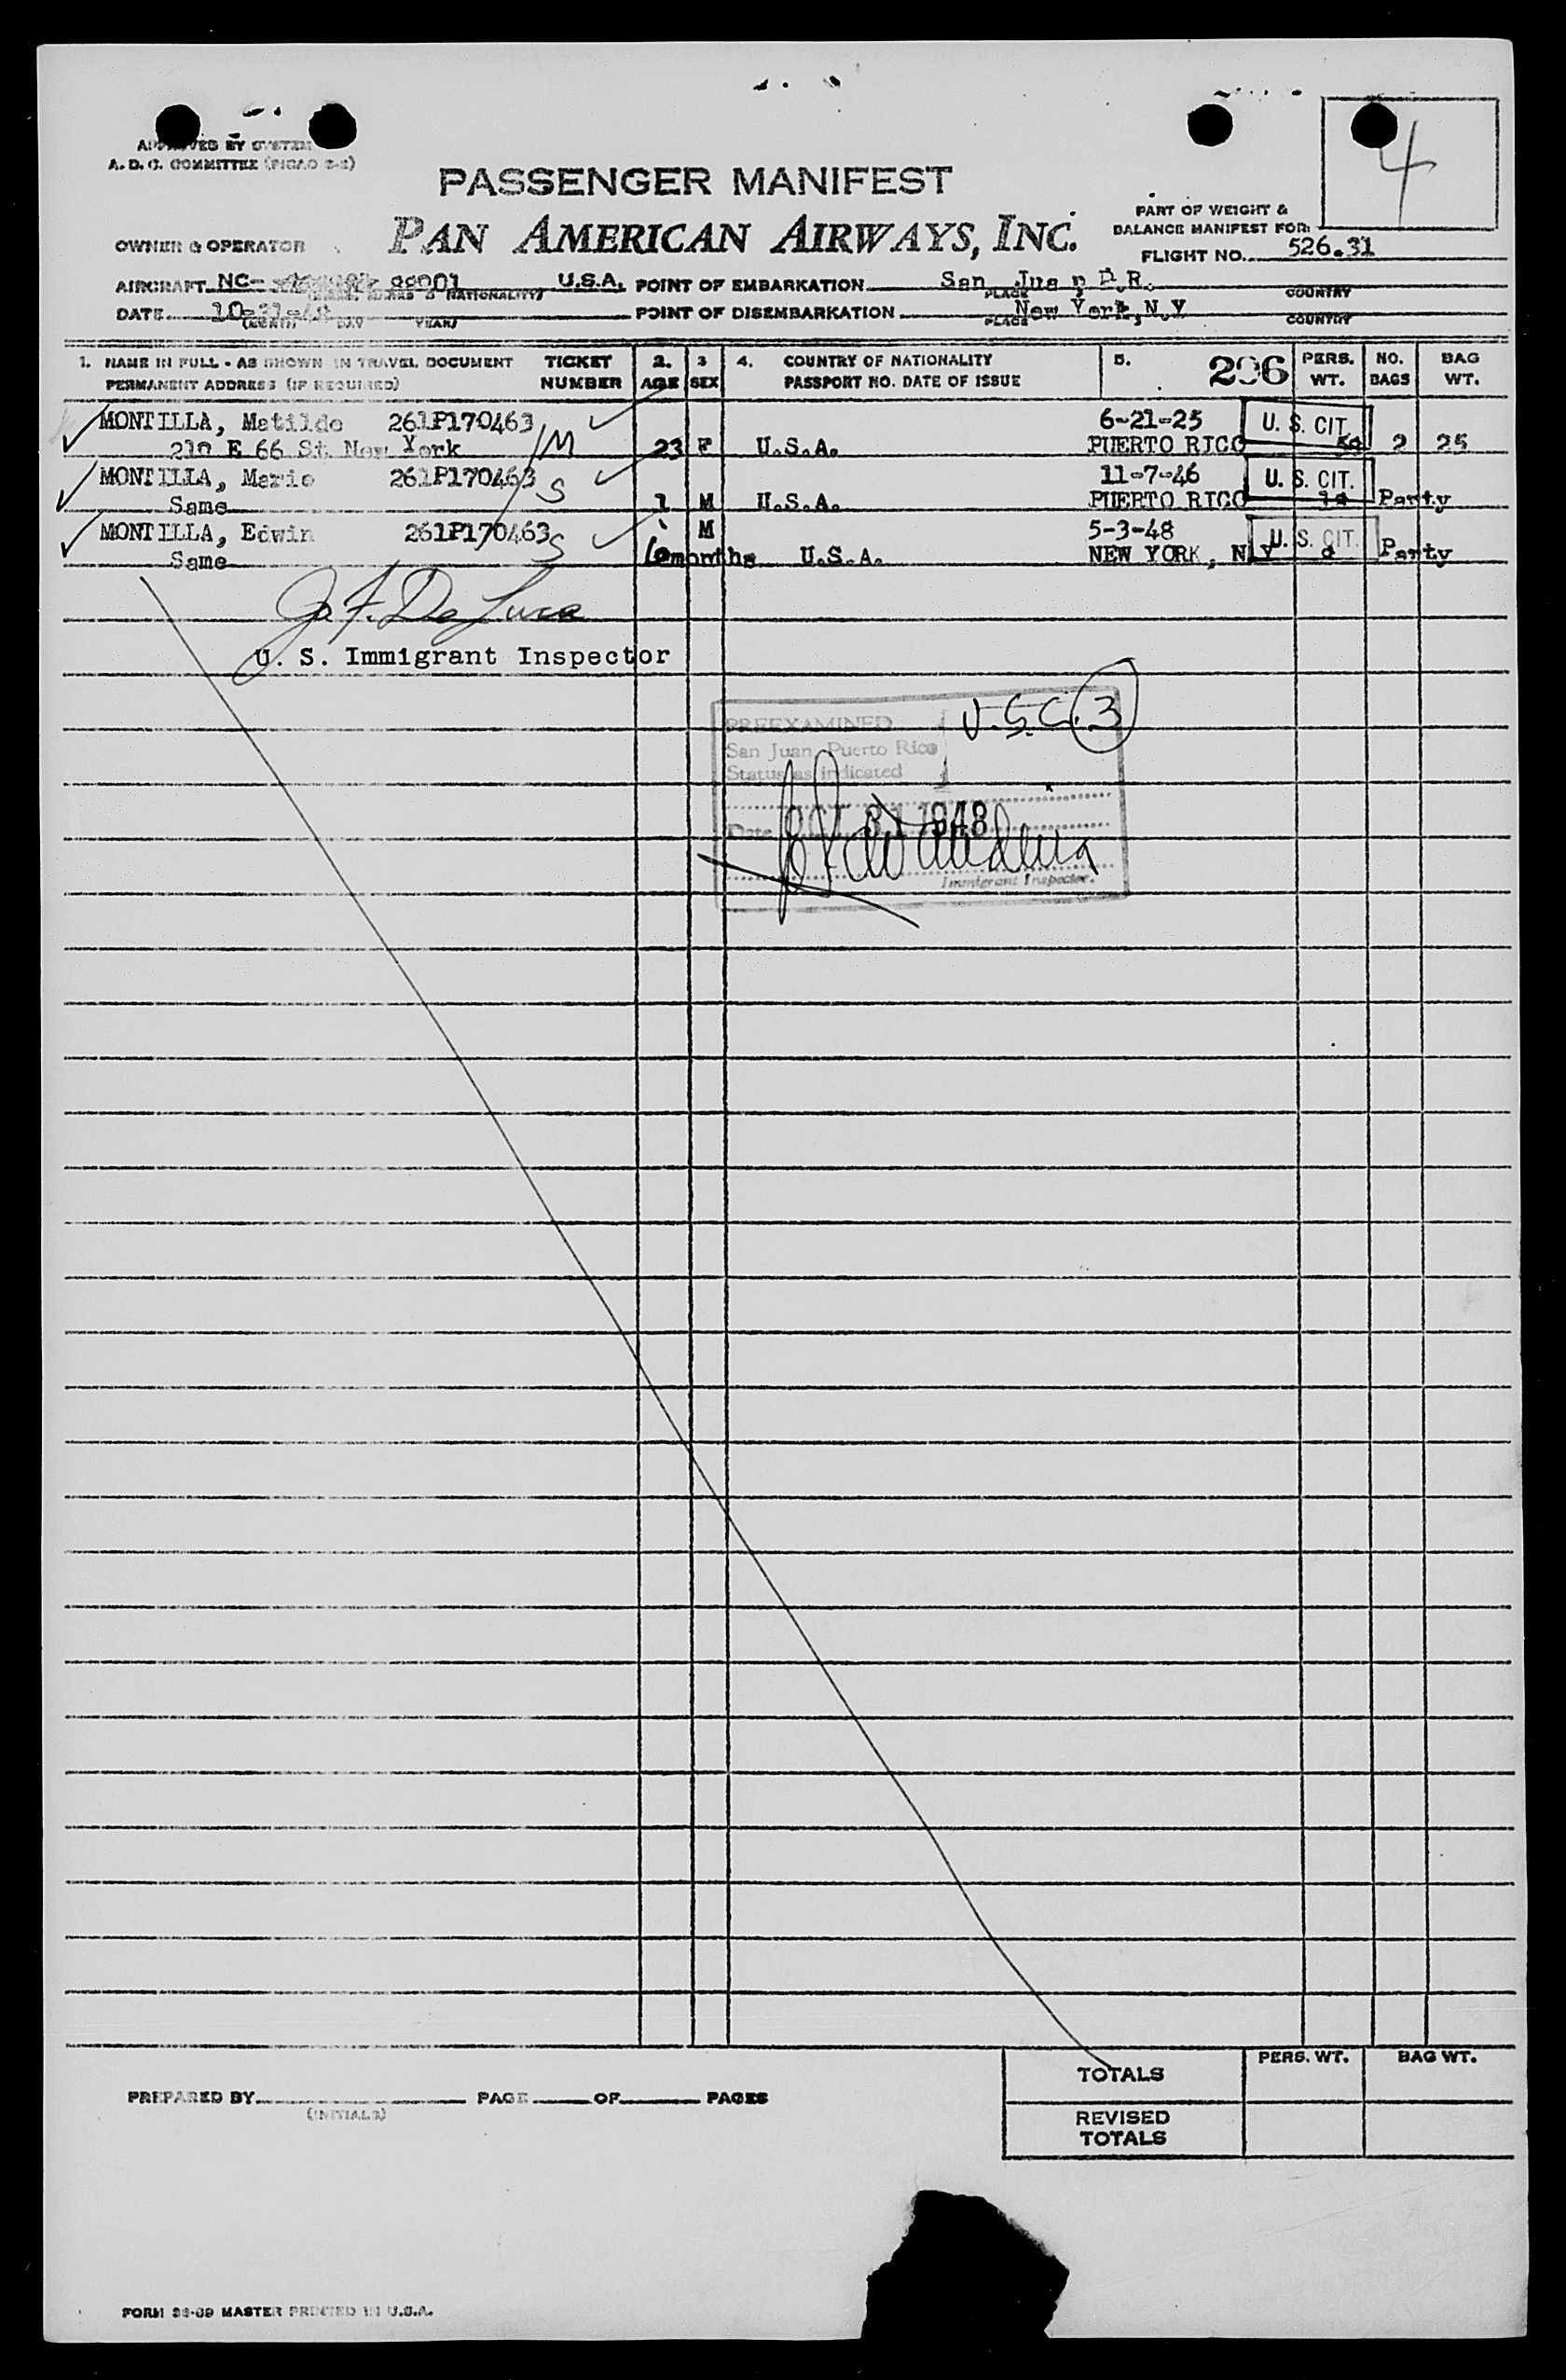 APPROVED BY SYSTEM
A. D. C. COMMITTEE (PICAO 2-2)
4
PASSENGER MANIFEST
PAN AMERICAN AIRWAYS, INC.
PART OF WEIGHT &
BALANCE MANIFEST FOR:
FLIGHT NO. 526.31
OWNER & OPERATOR
AIRCRAFT NC- 88901 U.S.A. POINT OF EMBARKATION San Juan, P.R.
(MARKS & NATIONALITY) PLACE COUNTRY
DATE 10-31-48 POINT OF DISEMBARKATION New York, N.Y
(MONTH DAY YEAR) PLACE COUNTRY
1. NAME IN FULL - AS SHOWN IN TRAVEL DOCUMENT TICKET 2. 3 4. COUNTRY OF NATIONALITY 5. 296 PERS. NO. BAG
PERMANENT ADDRESS (IF REQUIRED) NUMBER AGE SEX PASSPORT NO. DATE OF ISSUE WT. BAGS WT.
MONTILLA, Matilde 261P170463 6-21-25 U. S. CIT.
210 E 66 St. New York M 23 F U.S.A. PUERTO RICO 2 25
MONTILLA, Mario 261P170463 11-7-46 U. S. CIT.
Same S 1 M U.S.A. PUERTO RICO Party
MONTILLA, Edwin 261P170463 M 5-3-48 U. S. CIT.
Same S 6 months U.S.A. NEW YORK, N.Y Party
Jo. F. De Luca
U. S. Immigrant Inspector
PREEXAMINED U.S.C. 3
San Juan, Puerto Rico
Status as indicated
Date OCT 31 1948
Immigrant Inspector.
TOTALS PERS. WT. BAG WT.
PREPARED BY PAGE OF PAGES
(INITIALS)
REVISED
TOTALS
FORM 28-09 MASTER PRINTED IN U.S.A.